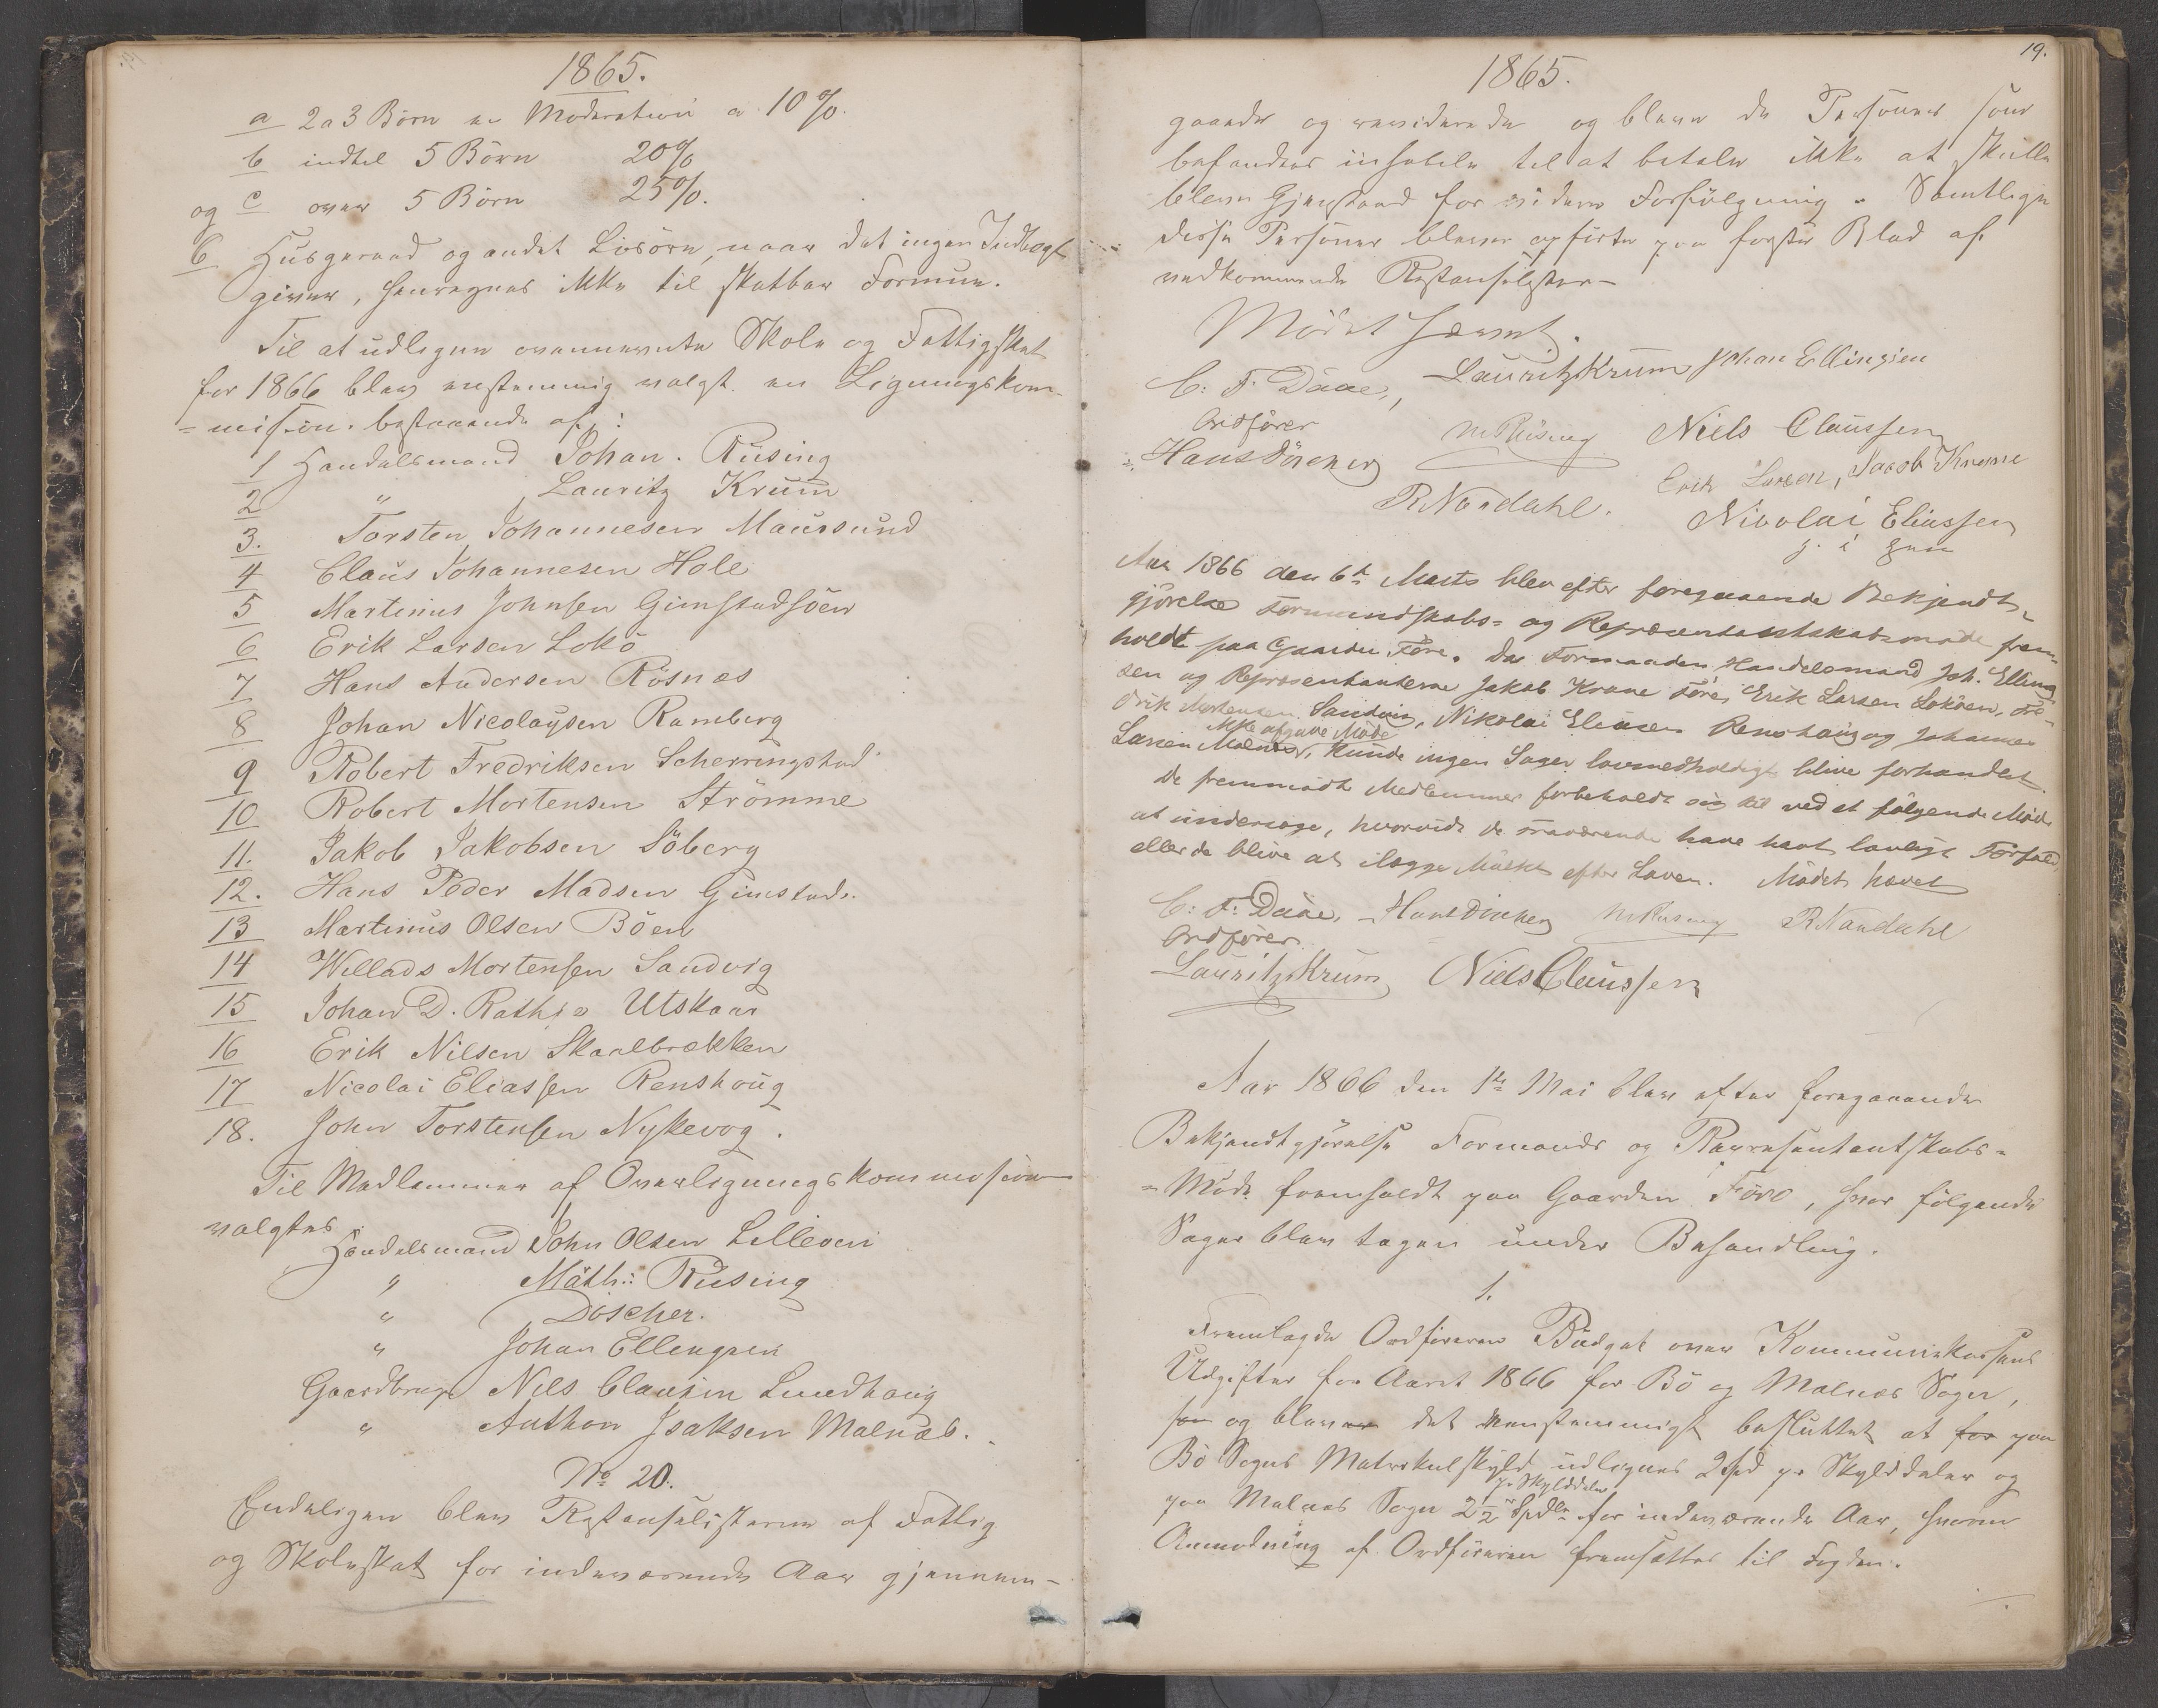 1865.
a 2 a 3 Börn en Moderation a 10%.
b indtil 5 Börn 20%
og c over 5 Börn 25%.
6 Husgeraad og andet Lösöre, naar det ingen Indtægt
giver, henregnes ikke til skatbar Formue.
Til at udligne ovennævnte Skole og Fattigskat
for 1866 blev enstemmig valgt en Ligningskom-
=mission bestaaende af:
1 Handelsmand Johan. Rüsing
2 " Lauritz Krum
3. Torsten Johannesen Maursund
4 Claus Johannesen Hole
5 Martinus Johnsen Gimstadsöen
6 Erik Larsen Lokö
7 Hans Andersen Rösnæs
8 Johan Nicolaysen Ramberg
9 Robert Fredriksen Scherringstad
10 Robert Mortensen Strömme
11. Jakob Jakobsen Söberg
12. Hans Peder Madsen Gimstad
13 Martinus Olsen Böen
14 Willads Mortensen Sandvig
15 Johan D. Rathje Utskaar
16 Erik Nilsen Skaalbrækken
17 Nicolai Eliassen Renshoug
18. John Torstensen Nykevog.
Til Medlemmer af Overligningskommission
valgtes
Handelsmand John Olsen Lilleven
" Math: Rüsing
" Döscher.
" Johan Ellengsen
Gaardbruger Nils Clausen Lundhoug
" Anthon Isaksen Malnæs.
No 20.
Endeligen blev Restanselisterne af Fattig
og Skoleskat for indeværende Aar gjennem-
19.
1865.
gaaede og reviderede og bleve de Personer som
befandtes inhabile til at betale ikke at skulle
blive Gjenstand for videre Forfölgning. Samtlige
disse Personer bleve opförte paa förste Blad af
vedkommende Restanselister-
Mödet hævet.
C: F. Daae, Lauritz Krum Johan Ellingsen
Ordförer M Rüsing Niels Claussen
Hans Döscher Erik Larsen, Jacob Krane
R Nordahl. Nicolai Eliassen
Aar 1866 den 6te Marts blev efter foregaaende Bekjendt-
gjörelse Formandskabs= og Repræsentantskabsmöde frem-
holdt paa Gaarden Före. Da Formanden Handelsmand Joh. Elling-
sen og Repræsentanterne Jakob Krane Före, Erik Larsen Loköen, Fre-
drik Mortensen Sandvig, Nikolai Eliasen Renshaug og Johannes
Larsen Malnes, ikke afgave Möde kunde ingen Sager lovmedholdigt blive forhandlet.
De fremmödte Medlemmer forbeholdt sig til ved et fölgende Möde
at undersöge, hvorvidt de fraværende have havt lovligt Forfald,
eller de blive at ilægge Mulkt efter Loven. Mödet hævet
C: F: Daae, Hans Döscher M Rüsing R Nordahl
Ordförer.
Lauritz Krum Niels Claussen
Aar 1866 den 1te Mai blev efter foregaaende
Bekjendtgjörelse Formands og Repræsentantskabs=
=Möde fremholdt paa Gaarden Före, hvor fölgende
Sager blev tagen under Behandling.
1.
Fremlagde Ordföreren Budget over Kommunekassens
Udgifter for Aaret 1866 for Bö og Malnes Sogn,
og blev det eenstemmigt besluttet at for paa
Bö Sogns Matrikulskyld udlignes 2 Spd pr Skylddaler og
paa Malnes Sogn 2½ Spdlr pr Skylddaler for indeværende Aar, hvorom
Anmodning af Ordföreren fremsættes til Fogden.